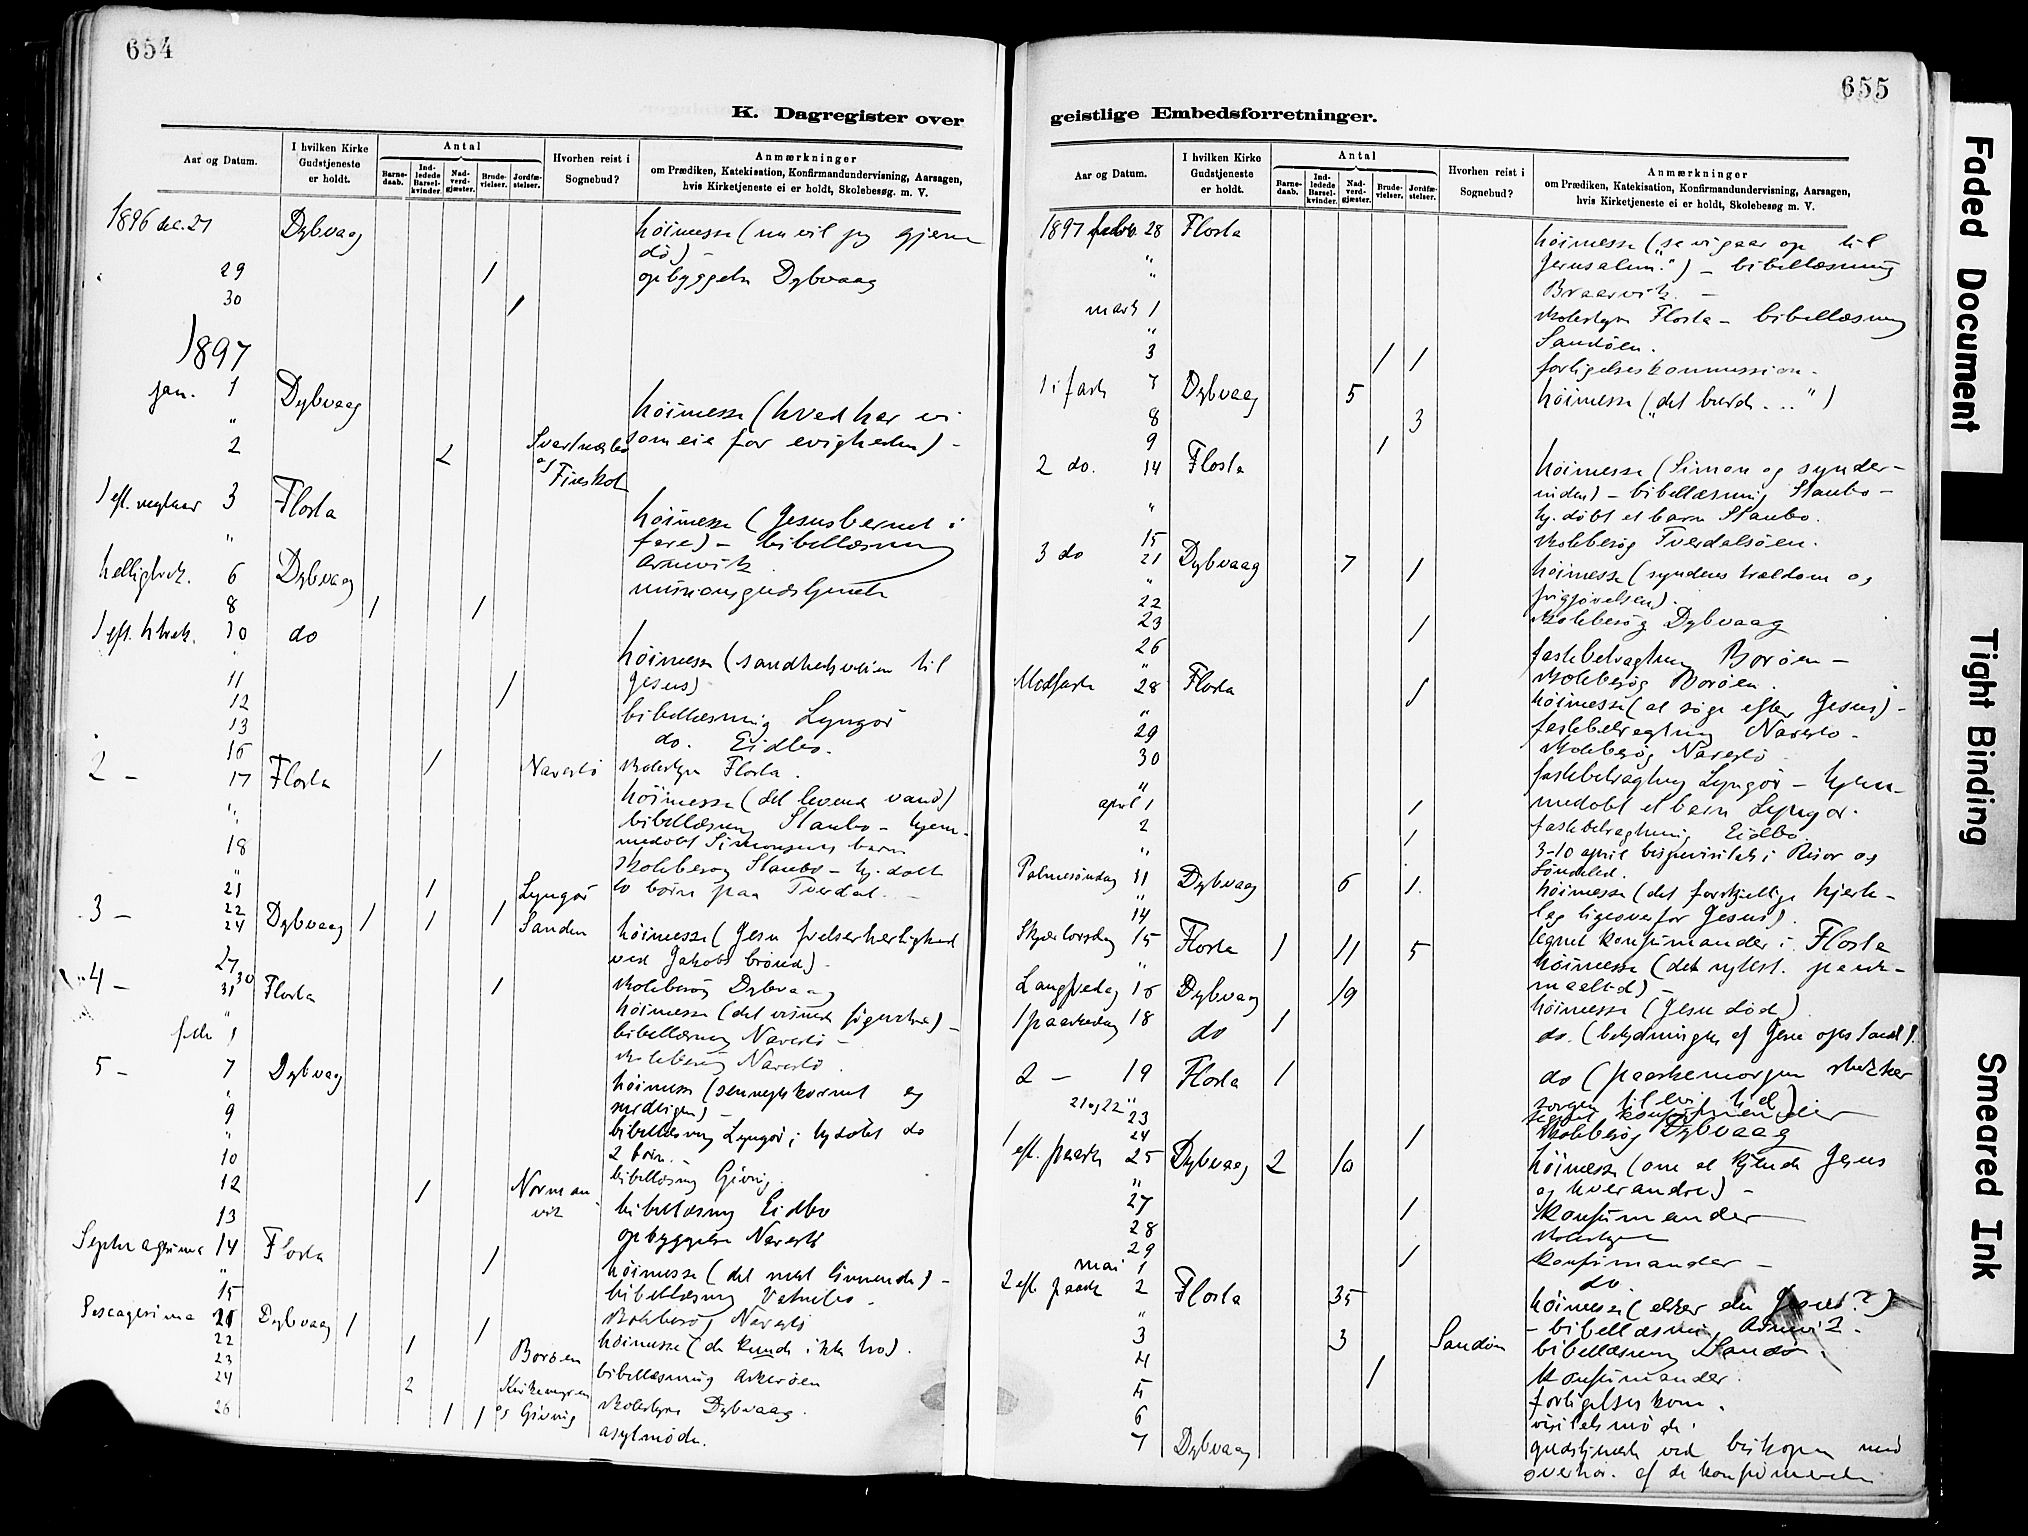 654
K. Dagregister over
Aar og Datum.
I hvilken Kirke
Gudstjeneste
er holdt.
Antal
Barne-
daab.
Ind-
ledede
Barsel-
kvinder.
Nad-
verd-
gjæster.
Brude-
vielser.
Jordfæ-
stelser.
Hvorhen reist i
Sognebud?
Anmærkninger
om Prædiken, Katekisation, Konfirmandundervisning, Aarsagen,
hvis Kirketjeneste ei er holdt, Skolebesøg. m. V.
1896 dec. 27 Dybvaag høimesse (nu vil jeg gjerne
dø) -
29 1 opbyggelse Dybvaag
30 1
1897
jan. 1 Dybvaag høimesse (hvad har vi
som eie for evigheden) -
" 2 2
1 eft. nytaar 3 Flosta høimesse (Jesusbarnet i
fare) - bibellæsning
Arnevik
helligtrek. 6 Dybvaag missionsgudstjeneste
8 1 1
1 eft. h trek. 10 do høimesse (sandhedsveien til
Jesus)
11 1 bibellæsning Lyngør
12 do. Eidbo.
13
16 1 Naverstø skolestyre Flosta.
2 - 17 Flosta høimesse (det levende vand)
" bibellæsning Staubo - hjem-
medøbt Simonsens barn
18 skolebesøg Staubo - hj. døbt
to børn paa Tverdal. -
21 1 Lyngør
22 1
3 - 24 Dybvaag 1 1 Sanden høimesse (Jesu frelserherlighed
ved Jakobs brønd) -
27 skolebesøg Dybvaag
30 1
4 - 31 Flosta høimesse (det visnede figentræ) -
" bibellæsning Naverstø -
feb 1 skolebesøg Naverstø
5 - 7 Dybvaag høimesse (sennepskornet og
surdeigen) -
9 bibellæsning Lyngør; hj døbt do
2 børn. -
10 bibellæsning Givvig.
12 1 Norman
vik bibellæsning Eidbo
13 opbyggelse Naverstø
Septuagesima 14 Flosta 1 høimesse (det mest linnende) -
" bibellæsning Vatnebo -
15 skolebesøg Naverstø
Sexagesima 21 Dybvaag 1 1 høimesse (de kunde ikke tro).
22 1 Borøen bibellæsning Askerøen
23
24 2 skolestyre Dybvaag.
26 1 1 og Givvig asylmøde.
655
geistlige Embedsforretninger.
Aar og Datum.
I hvilken Kirke
Gudstjeneste
er holdt.
Antal
Barne-
daab.
Ind-
ledede
Barsel-
kvinder.
Nad-
verd-
gjæster.
Brude-
vielser.
Jordfæ-
stelser.
Hvorhen reist i
Sognebud?
Anmærkninger
om Prædiken, Katekisation, Konfirmandundervisning, Aarsagen,
hvis Kirketjeneste ei er holdt, Skolebesøg m. V.
1897 febr. 28 Flosta høimesse (se vi gaar op til
Jerusalem") - bibellæsning
Braarvik. -
mars 1 skolestyre Flosta - bibellæsning
Sandøen.
3 1 1 forligelseskommission -
1 i faste 7 Dybvaag 5 høimesse („det burde ...")
8 3
9 1
2 do. 14 Flosta høimesse (Simon og synder-
inden) - bibellæsning Staubo -
hj. døbt et barn Staubo.
15 skolebesøg Tverdalsøen.
3 do 21 Dybvaag 7 1 høimesse (syndens trældom og
frigjørelsen).
22 skolebesøg Dybvaag
23 1
26 fastebetragtning Borøen -
" skolebesøg Borøen.
Midfaste 28 Flosta 1 høimesse (at søge efter Jesus) -
" fastebetragtning Naverstø -
29 skolebesøg Naverstø
30 fastebetragtning Lyngør - hjem-
" medøbt et barn Lyngør.
april 1 1 fastebetragtning Eidbo
2 1 3-10 april bispevisitats i Risør og
" Søndeled.
Palmesøndag 11 Dybvaag 6 1 høimesse (det forskjellige hjerte-
lag ligeoverfor Jesus).
14 tegnet konfirmander i Flosta
Skjærtorsdag 15 Flosta 1 11 5 høimesse (det nytest. paaske-
maaltid) -
Langfredag 16 Dybvaag 19 høimesse (Jesu død)
1 paaskedag 18 do 1 do. (betydningen af Jesu opstand).
2 - 19 Flosta 1 do (paaskemorgen slukker
sorgen til evig tid)
21 og 22 "
23 tegnet konfirmander
24 1 skolebesøg Dybvaag
1 eft. paaske 25 Dybvaag 2 10 høimesse (om at kjende Jesus
" og hverandre) -
27 1 Konfirmander
28 skolestyre
29 1 konfirmander -
mai 1 do
2 eft. paaske 2 Flosta 35 høimesse (elsker du Jesus?)
" - bibellæsning Arnevik.
3 3 Sandøen bibellæsning Sandøen.
4 1 konfirmander.
5 forligelseskom.
6 visitatsmøde.
7 Dybvaag gudstjeneste ved biskopen med
overhør. af de konfirmerede
Faded Document
Tight Binding
Smeared Ink